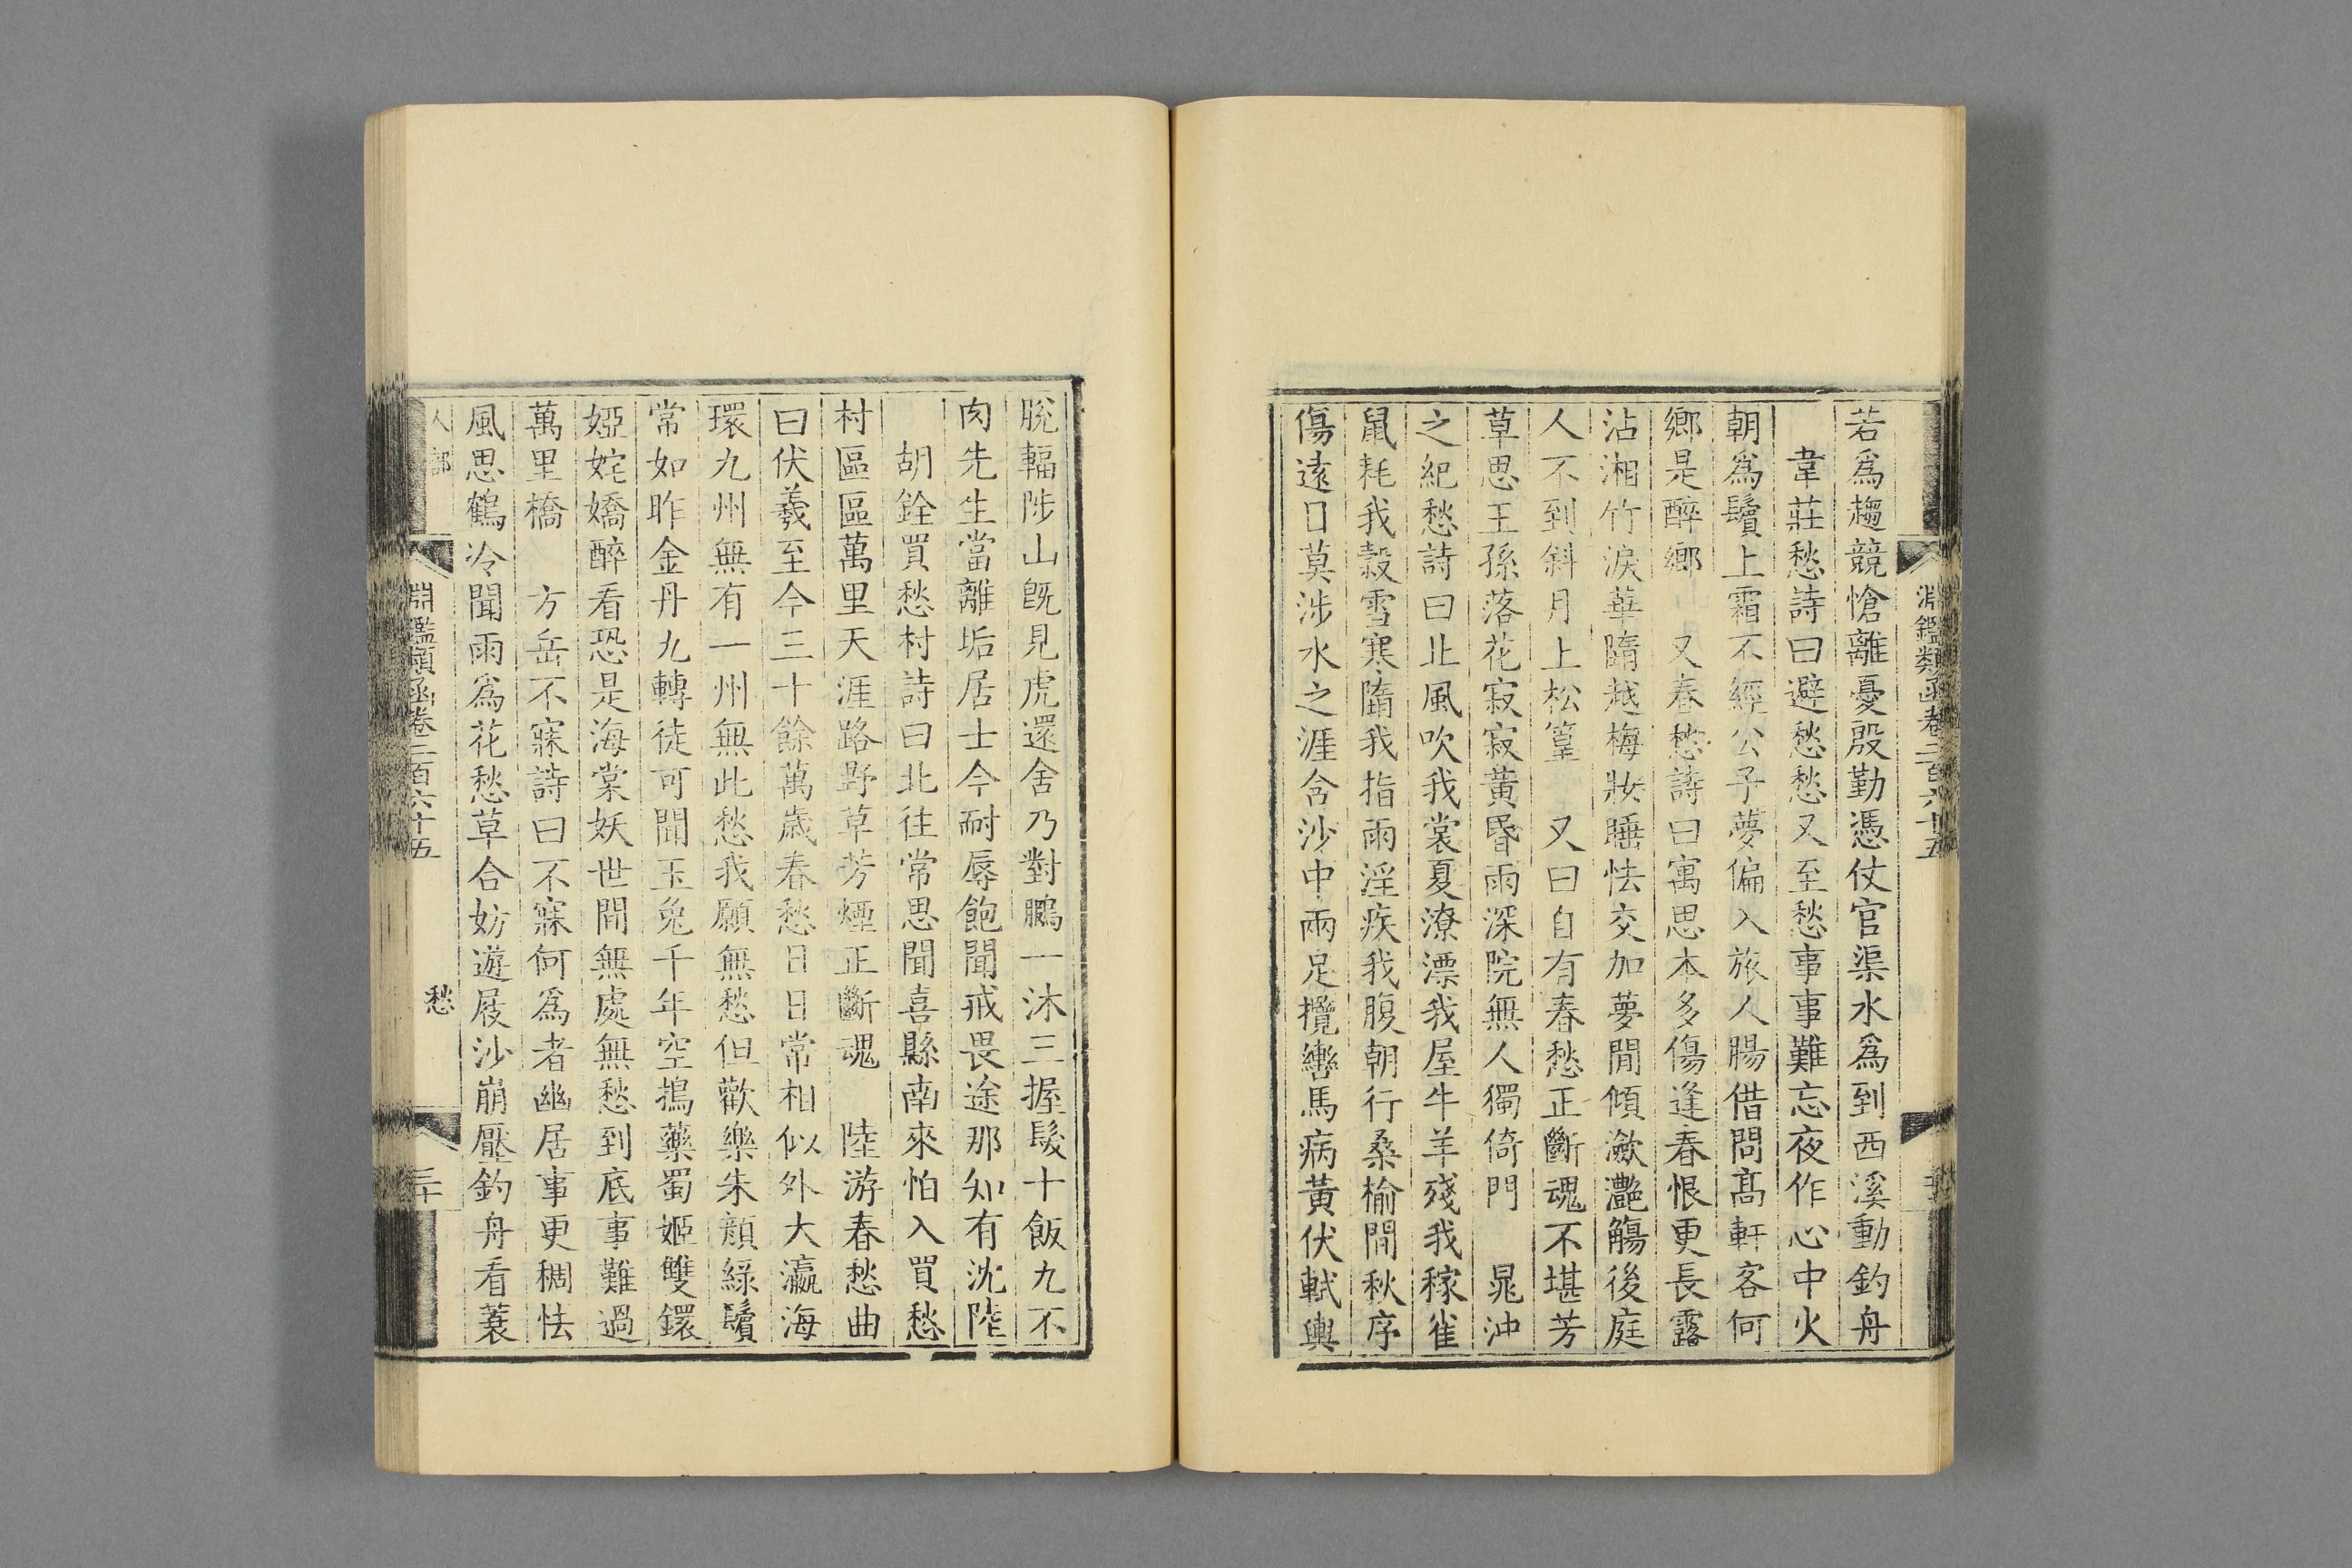 淵鑑類函卷二百六十五
若爲趨競愴離憂殷勤憑仗官渠水爲到西溪動釣舟
韋莊愁詩曰避愁愁又至愁事事難忘夜作心中火
朝爲鬢上霜不經公子夢偏入旅人腸借問髙軒客何
鄉是醉鄉　又春愁詩曰寓思本多傷逢春恨更長露
沾湘竹淚華隋越梅妝睡怯交加夢閒傾瀲灩觴後庭
人不到斜月上松篁　又曰自有春愁正斷魂不堪芳
草思王孫落花寂寂黃昏雨深院無人獨倚門　晁沖
之紀愁詩曰北風吹我裳夏潦漂我屋牛羊殘我稼雀
鼠耗我穀雪寒隋我指雨淫疾我腹朝行桑榆間秋序
傷遠日莫涉水之涯含沙中兩足攬轡馬病黃伏軾輿
脫輻陟山旣見虎還舍乃對鵩一沐三握髮十飯九不
肉先生當離垢居士今耐辱飽聞戒畏途那知有沈陸
胡銓買愁村詩曰北往常思聞喜縣南來怕入買愁
村區區萬里天涯路野草芳煙正斷魂　陸游春愁曲
曰伏羲至今三十餘萬歲春愁日日常相似外大瀛海
環九州無有一州無此愁我願無愁但歡樂朱顏綠鬢
常如昨金丹九轉徒可聞玉兔千年空搗藥蜀姬雙鐶
婭姹嬌醉看恐是海棠妖世間無處無愁到底事難過
萬里橋　方岳不寐詩曰不寐何爲者幽居事更稠怯
風思鶴冷聞雨爲花愁草合妨遊屐沙崩壓釣舟看蓑
人部
淵鑑類函卷二百六十五
愁
三十